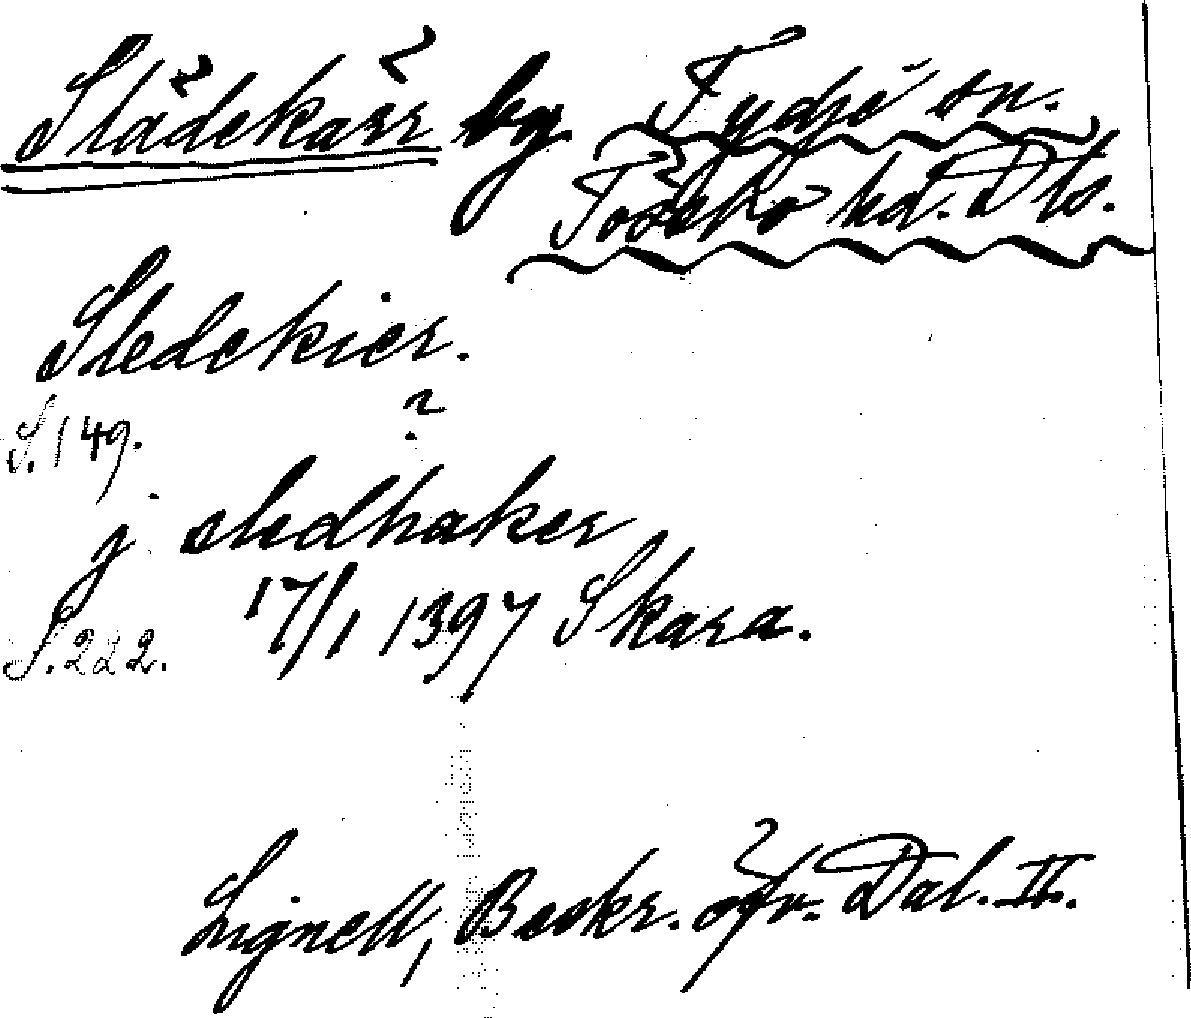 Slädekärr by Tydje sn.
Tössbo hd. Dls.
Sledekier.
S. 149.
?
j sledhaker
17/1 1397 Skara.
S. 222.
Lignell, Beskr. öfv. Dal. II.